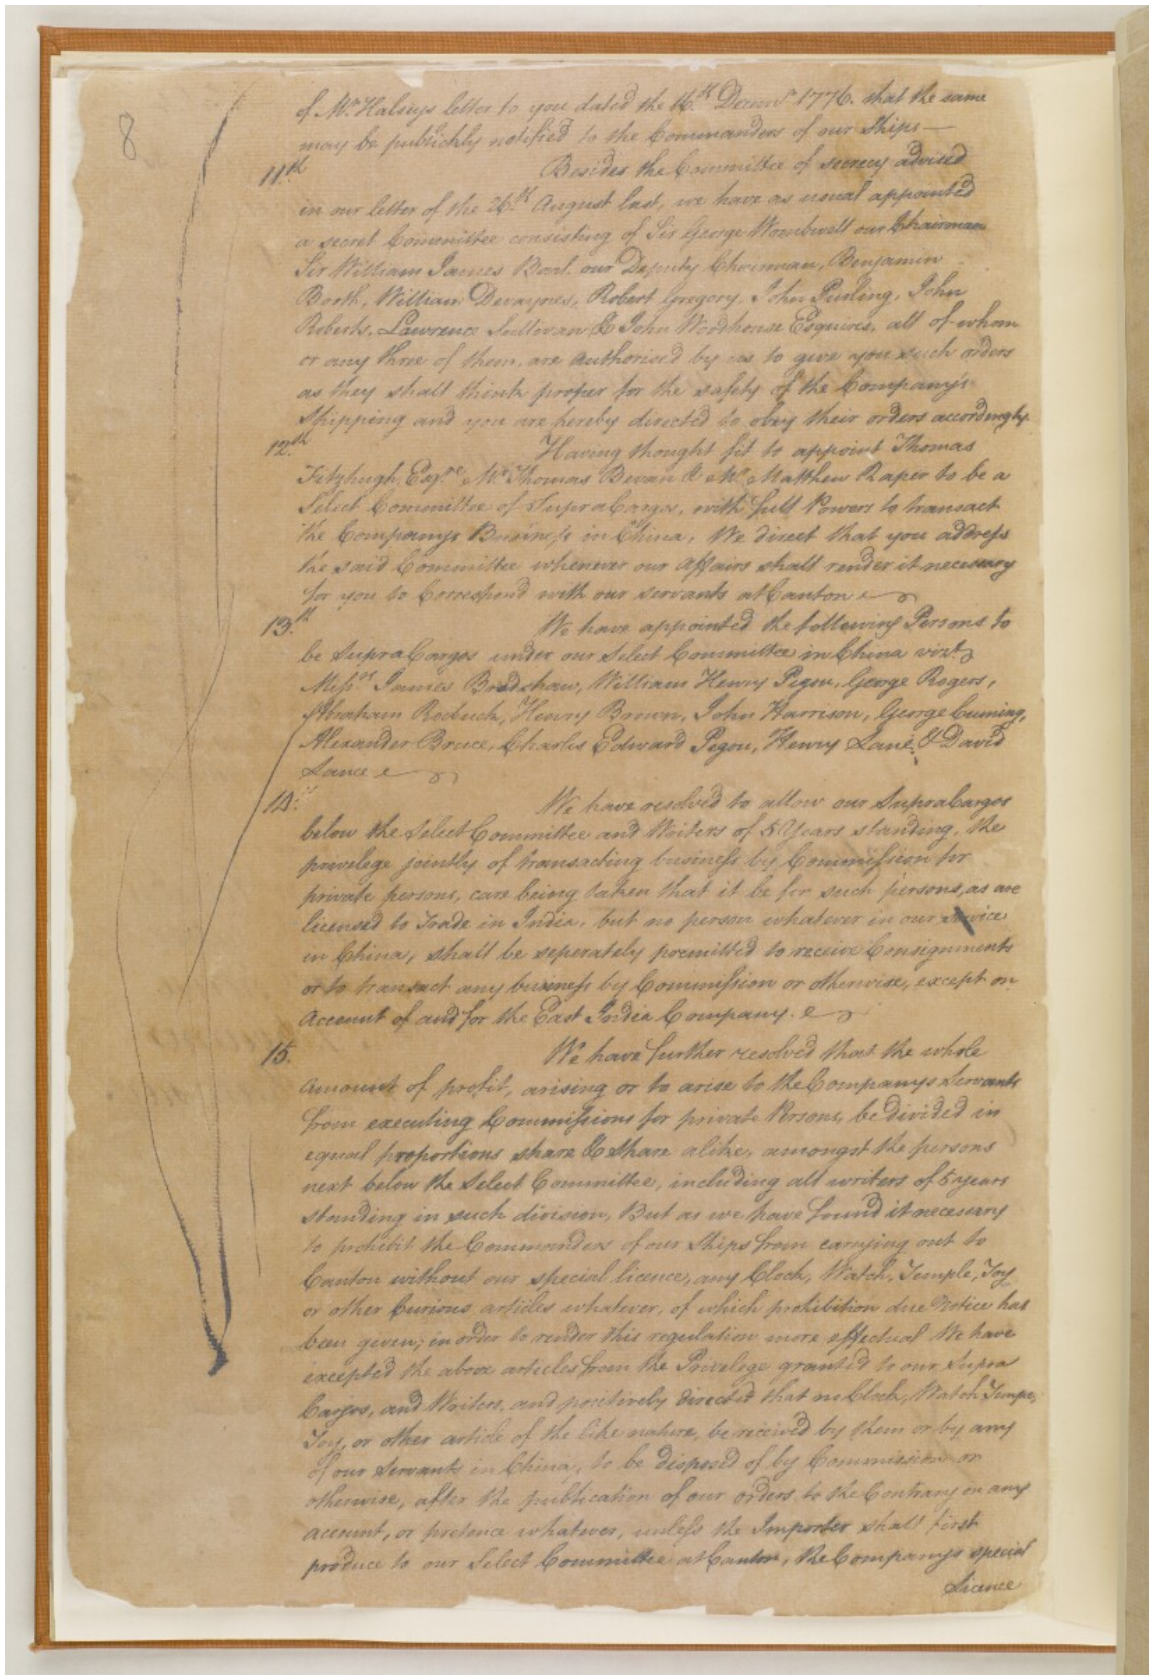 8
of Mr Halseys letter to you dated the 16th Decemr 1776. that the same
may be publickly notified to the Commanders of our Ships —
11th Besides the Committee of secrecy advised
in our letter of the 26th August last, we have as usual appointed
a secret Committee consisting of Sir George Wombwell our Chairman
Sir William James Bart. our Deputy Chairman, Benjamin
Booth, William Devaynes, Robert Gregory, John Purling, John
Roberts, Lawrence Sullivan & John Woodhouse Esquires, all of whom
or any three of them, are authorised by us to give you such orders
as they shall think proper for the safety of the Company's
Shipping and you are hereby directed to obey their orders accordingly.
12th Having thought fit to appoint Thomas
Fitzhugh Esqre Mr Thomas Bevan & Mr Matthew Raper to be a
Select Committee of SupraCargos, with full Powers to transact
the Companys Business in China, We direct that you address
the said Committee whenever our affairs shall render it necessary
for you to Correspond with our servants at Canton
13th We have appointed the following Persons to
be SupraCargos under our Select Committee in China vizt.
Messrs James Bradshaw, William Henry Pigou, George Rogers,
Abraham Roebuck, Henry Brown, John Harrison, George Cuming,
Alexander Bruce, Charles Edward Pigou, Henry Lane, & David
Lance
14. We have resolved to allow our SupraCargos
below the Select Committee and Writers of 5 Years standing, the
privelege jointly of transacting business by Commission for
private persons, care being taken that it be for such persons, as are
licensed to Trade in India, but no person whatever in our service
in China, shall be seperately premitted to receive Consignments
or to transact any business by Commission or otherwise, except on
Account of and for the East India Company.
15. We have further resolved that the whole
amount of profit, arising or to arise to the Companys Servants
from executing Commissions for private Persons, be divided in
equal proportions share & share alike, amongst the persons
next below the Select Committee, including all writers of 5 years
standing in such division, But as we have found it necessary
to prohibit the Commanders of our Ships from carrying out to
Canton without our special licence, any Clock, Watch, Temple, Toy
or other Curious articles whatever, of which prohibition due Notice has
been given; in order to render this regulation more effectual We have
excepted the above articles from the Privelege granted to our Supra
Cargos, and Writers, and positively directed that no Clock, Watch Temple,
Toy, or other article of the like nature, be received by them or by any
of our Servants in China, to be disposed of by Commission or
otherwise, after the publication of our orders to the Contrary on any
account, or pretence whatever, unless the Importer shall first
produce to our Select Committee at Canton, the Companys special
Licence